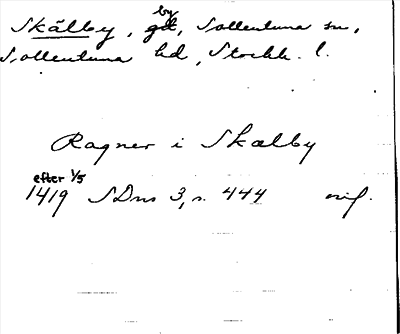 Skälby, by, gd, Sollentuna sn,
Sollentuna hd, Stockh. l.
Ragner i Skælby
efter 1/5
1419 SDns 3, s. 444 orig.